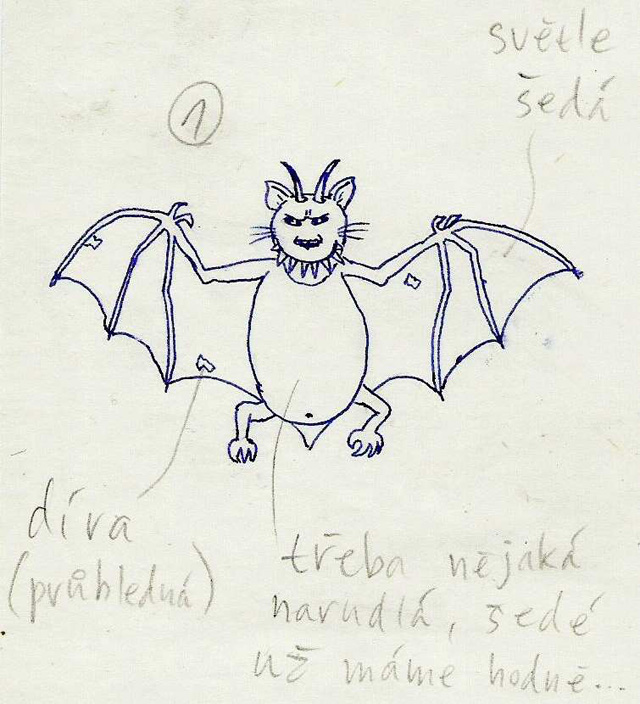 světle
šedá
1
díra
(průhledná)
třeba nějaká
narudlá, šedé
už máme hodně...